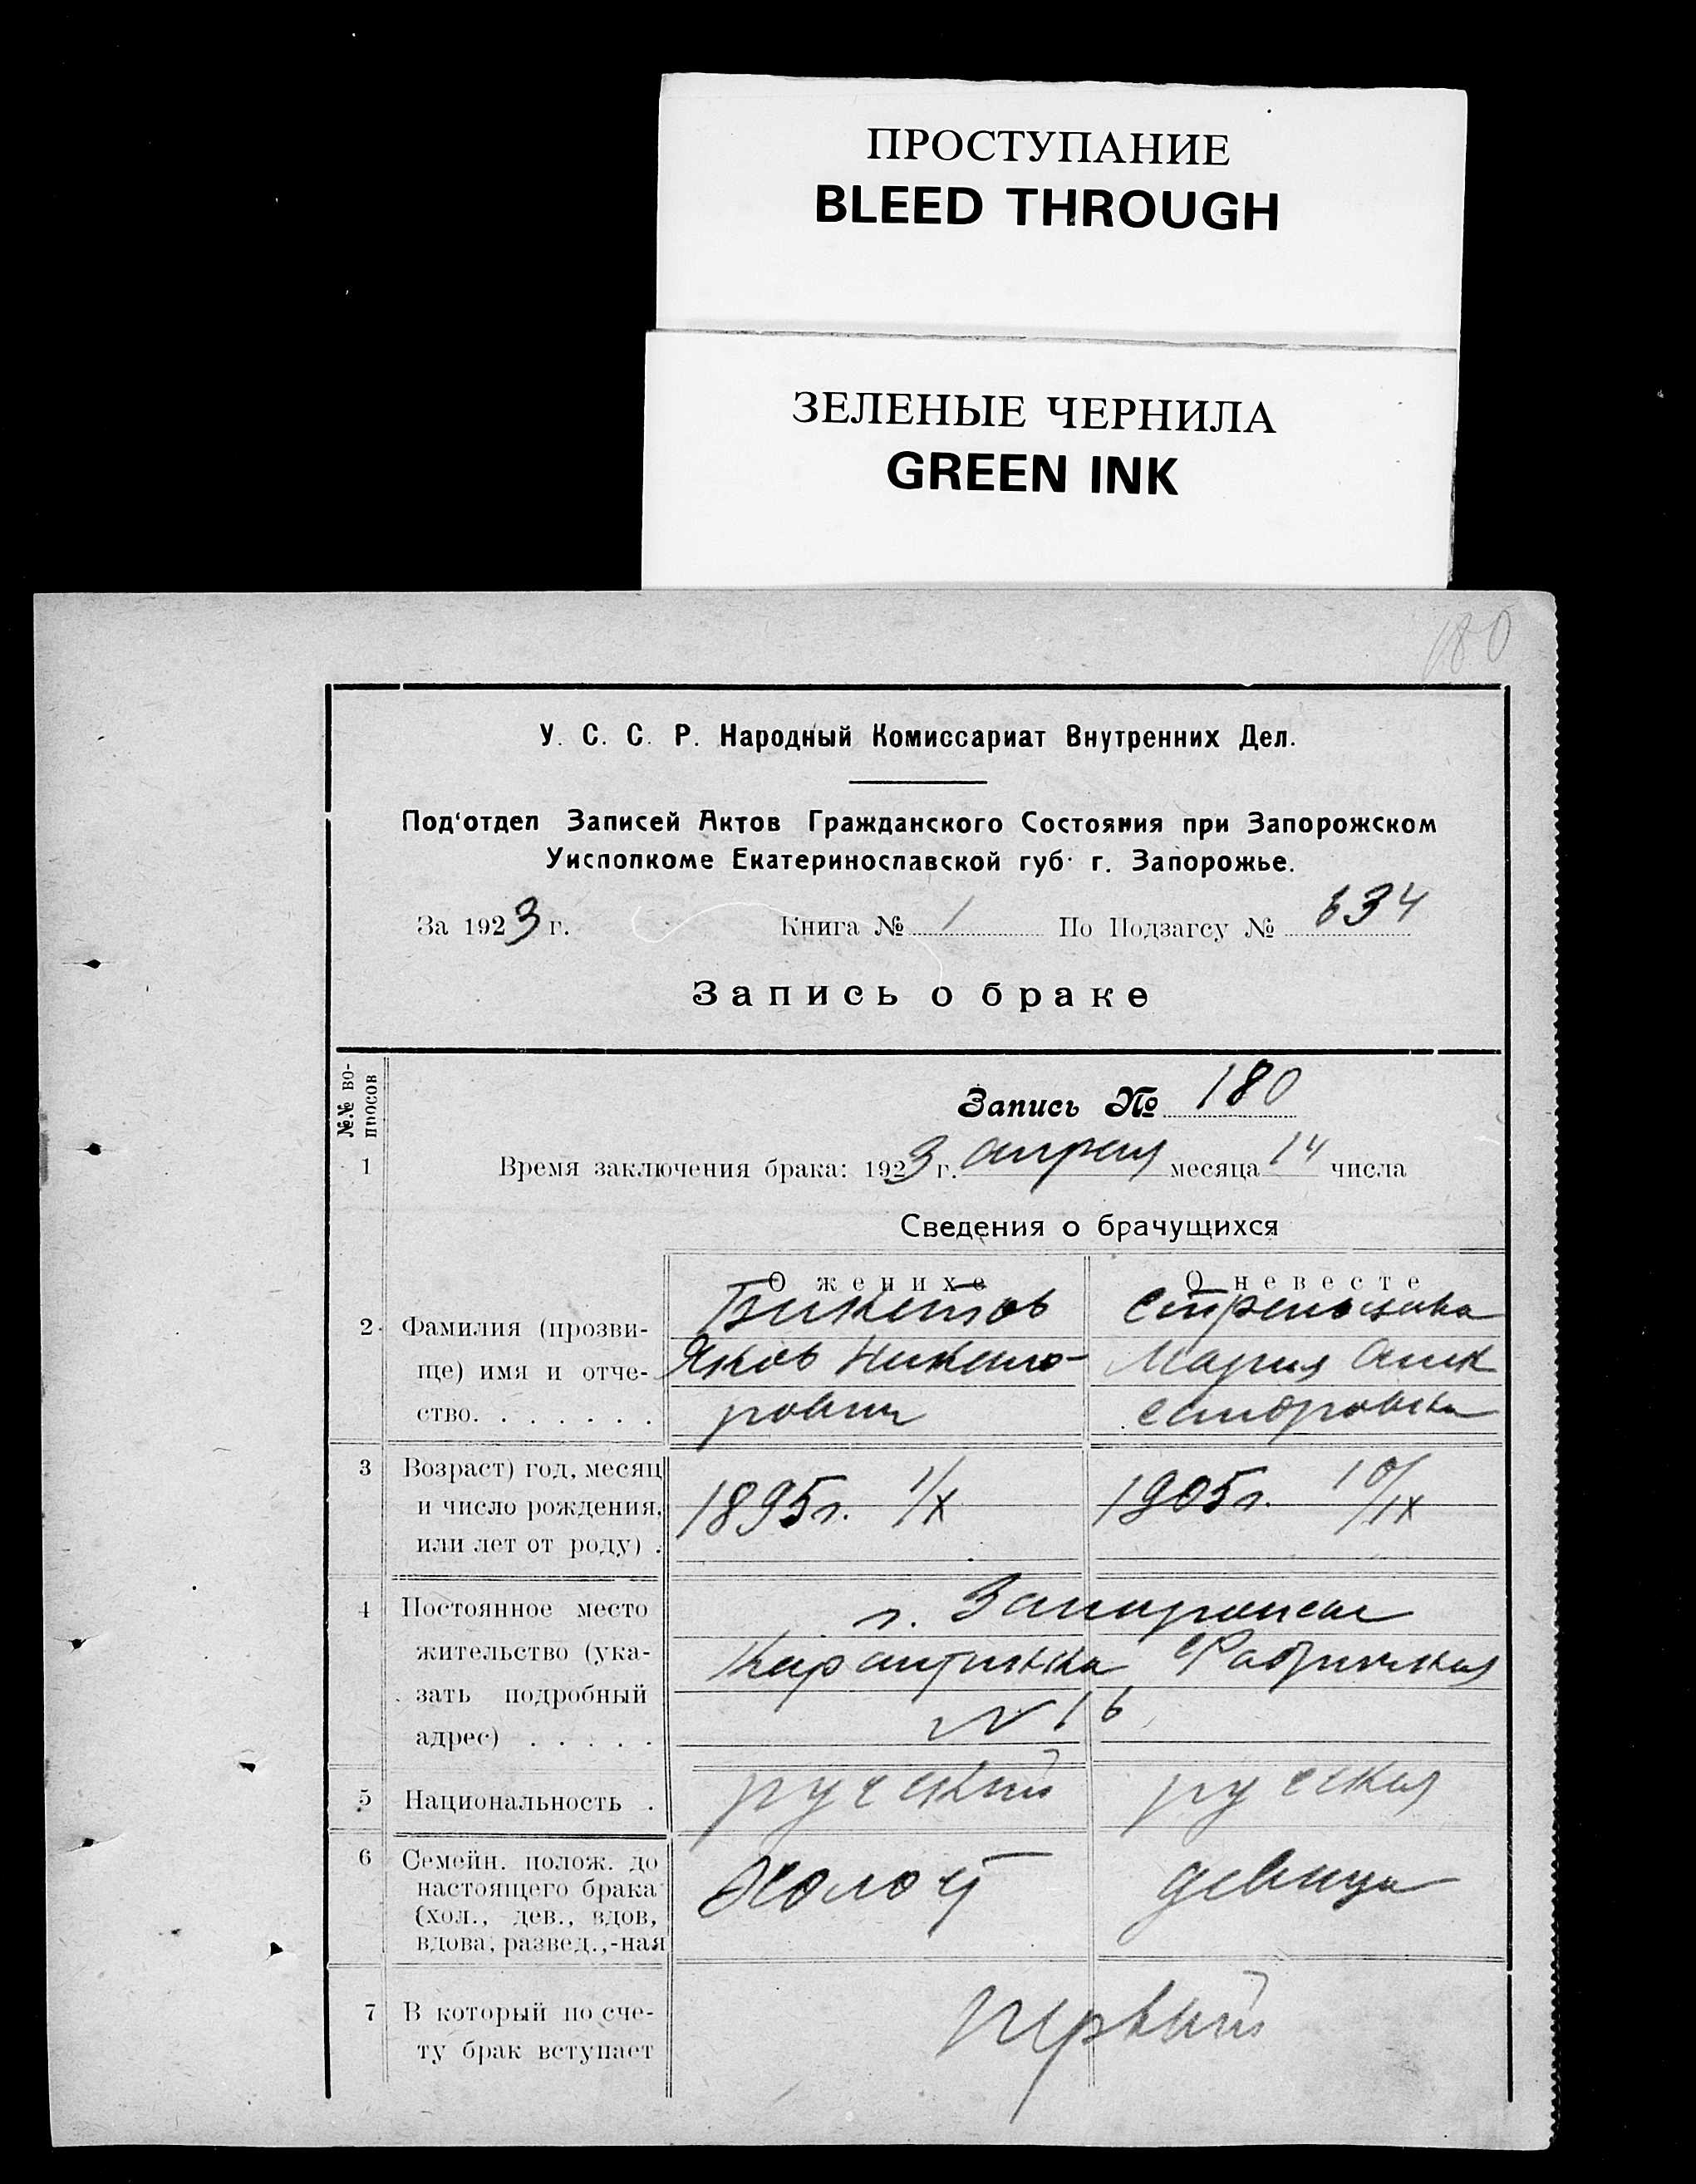 ПРОСТУПАНИЕ
BLEED THROUGH
ЗЕЛЕНЫЕ ЧЕРНИЛА
GREEN INK
180
У. С. С. Р. Народный Комиссариат Внутренних Дел.
Под'отдел Записей Актов Гражданского Состояния при Запорожском
Уисполкоме Екатеринославской губ. г. Запорожье.
За 1923 г. Книга № 1 По Подзагсу № 634
Запись о браке
№№ вопросов
Запись № 180
1 Время заключения брака: 1923 г. апреля месяца 14 числа
Сведения о брачущихся
О женихе О невесте
2 Фамилия (прозви- Бикетов
ще) имя и отче- Яков Никано- Мария Алек
ство. . . . . . . рович сандровна
3 Возраст) год, месяц
и число рождения, 1895 г. 1/X 1905 г. 10/IX
или лет от роду) .
4 Постоянное место г. Запорожье
жительство (ука- Карантинка Фабричная
зать подробный
адрес) . . . . . N 16
5 Национальность . русский русская
6 Семейн. полож. до
настоящего брака Холост девица
(хол., дев., вдов,
вдова, развед.,-ная
7 В который по сче- первый
ту брак вступает